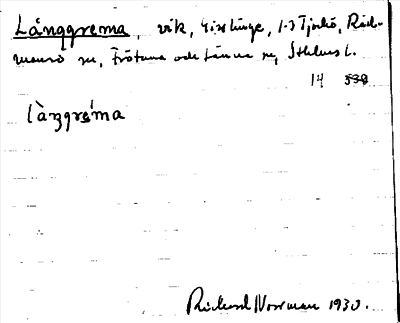 Långgrema, vik, Gisslinge, 1-3 Tjockö, Råd-
mansö sn, Frötuna och Länna sn, Sthlms l.
14 539
làŋgre̍ma
Rickard Norrman 1930.